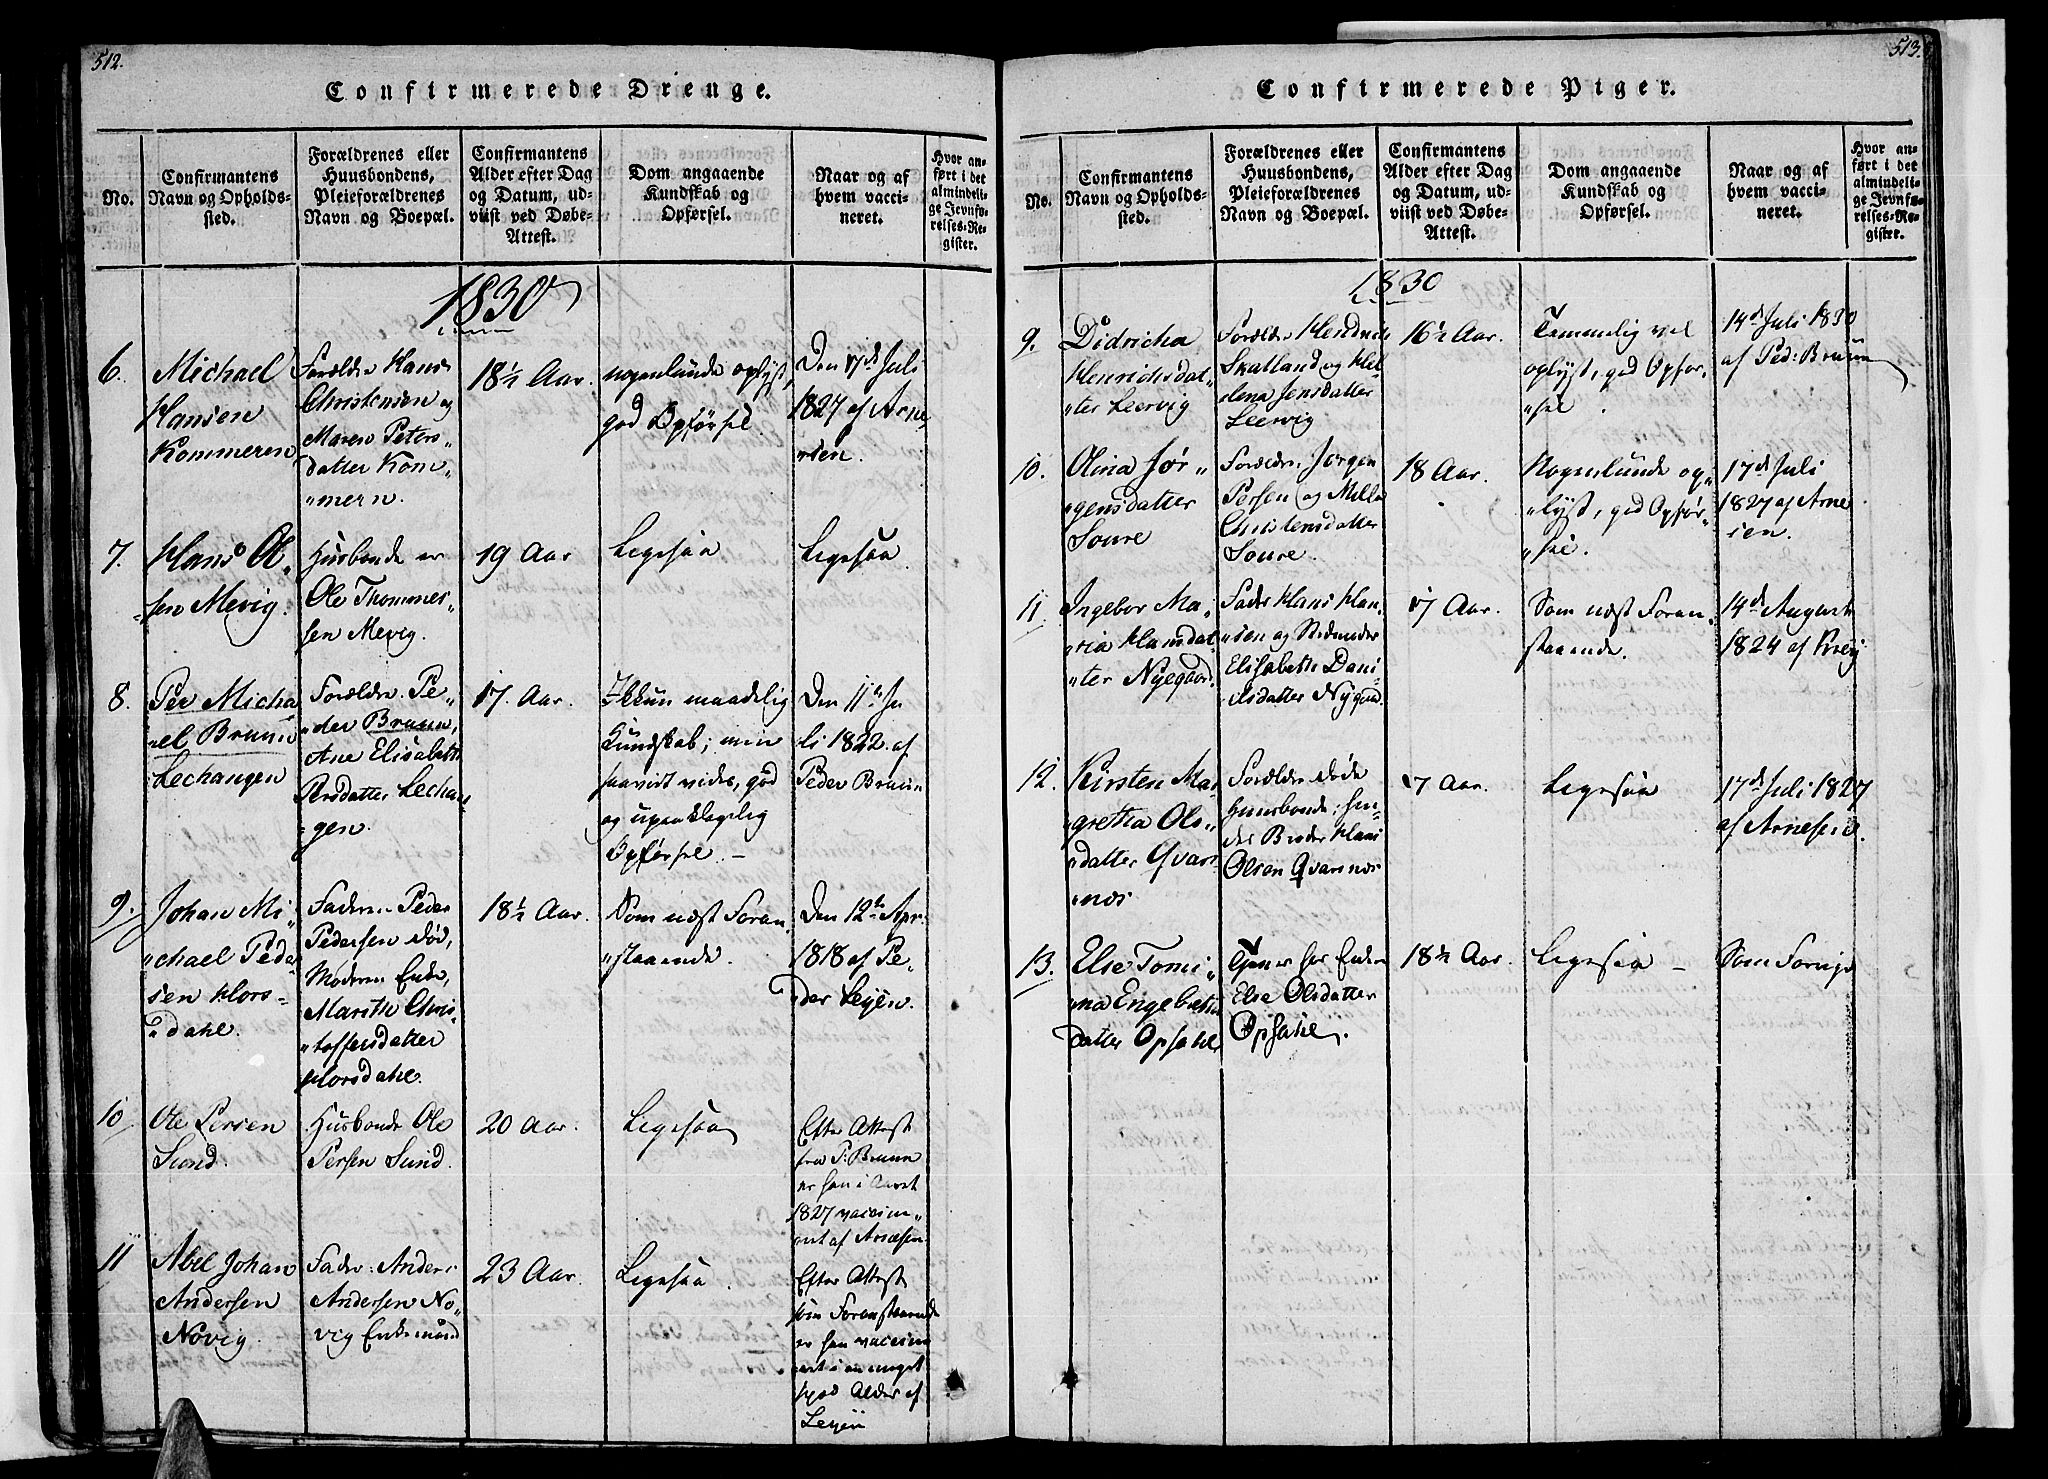 512.
Confirmerede Drenge.
No.
Confirmantens
Navn og Opholds-
sted.
Forældrenes eller
Huusbondens,
Pleieforældrenes
Navn og Boepæl.
Confirmantens
Alder efter Dag
og Datum, ud-
viist ved Døbe-
Attest.
Dom angaaende
Kundskab og
Opførsel.
Naar og af
hvem vacci-
neret.
Hvor an-
ført i det
almindeli-
ge Jevnfø-
relses-Re-
gister.
1830
6.
Michael
Hansen
Kommeren
Forældre Hans
Christensen og
Maren Peters„
datter Kom„
„mern.
18½ Aar.
nogenlunde oplyst,
god Opførsel.
Den 17de Juli
1827 af Arne„
„sen.
7.
Hans Ol„
„sen Mevig.
Husbonde er
Ole Thommes„
sen Mevig.
19 Aar
Ligesaa
Ligesaa.
8.
Per Micha
„el Bruun
Lechangen
Forældre: Pe„
„der Bruun,
Ane Elisabeth
Persdatter Lechan
„gen.
17. Aar.
Ikkun maadelig
Kundskab; men
saavidt vides, god
og upaaklagelig
Opførsel. –
Den 11te Ju
li 1822. af
Peder Bruun
9.
Johan Mi„
„chael Peder
sen Hors„
„dahl.
Faderen Peder
Pedersen død,
Moderen Enke,
Marith Chris„
„toffersdatter
Horsdahl.
18½ Aar.
Som næst Foran„
„staaende.
Den 12te Apr.
1818 af Pe„
„der Leyen.
10
Ole Persen
Sund.
Husbonde Ole
Persen Sund.
20 Aar.
Ligesaa
Efter Attest
fra P: Bruun
er han i Aaret
1827 vaccine„
ret af Arnesen
11
Abel Johan
Andersen
Novig.
Fader: Anders
Andersen No„
vig Enkemand
23 Aar.
Ligesaa.
Efter Attest
som Foranstaaende
er han vaccine
ret i en meget
spæd Alder af
Leyen
513.
Confirmerede Piger.
No.
Confirmantens
Navn og Opholds-
sted.
Forældrenes eller
Huusbondens,
Pleieforældrenes
Navn og Boepæl.
Confirmantens
Alder efter Dag
og Datum, ud-
viist ved Døbe-
Attest.
Dom angaaende
Kundskab og
Opførsel.
Naar og af
hvem vacci-
neret.
Hvor an-
ført i det
almindeli-
ge Jevnfø-
relses-Re-
gister.
1830
9.
Didricha
Henrichsdat„
„ter Leervig
Forældre Hendrich
Skatland og Hel„
„lena Jensdatter
Leervig
16½ Aar.
Temmelig vel
oplyst, god Opfør„
„sel.
14de Juli 1830
af Ped: Bruun
10.
Olina Jør„
„gensdatter
Soure
Forældre: Jørgen
Persen og Mille
Christensdatter
Soure.
18 Aar.
Nogenlunde op„
„lyst, god Opfør„
„sel.
17de Juli
1827 af Arne
sen.
11.
Ingebor Ma„
„ria Hansdat„
„ter Nyegaard
Fader Hans Han„
„sen og Stedmoder
Elisabeth Dani„
elsdatter Nygaard
17 Aar.
Som næst Foran„
staaende.
14de August
1824 af Krey
12.
Kirsten Ma„
„gretha Ols„
„datter Qvars
„næs
Forældre døde
Huusbonde: hen„
des Broder Hans
Olsen Qvarsnæs
17 Aar.
Ligesaa
17de Juli 1827
af Arnesen.
13.
Else Tomi„
„na Engebrets
datter Opsahl
Tjener hos Enken
Else Olsdatter
Opsahl.
18½ Aar.
Ligesaa –
Som Forrige